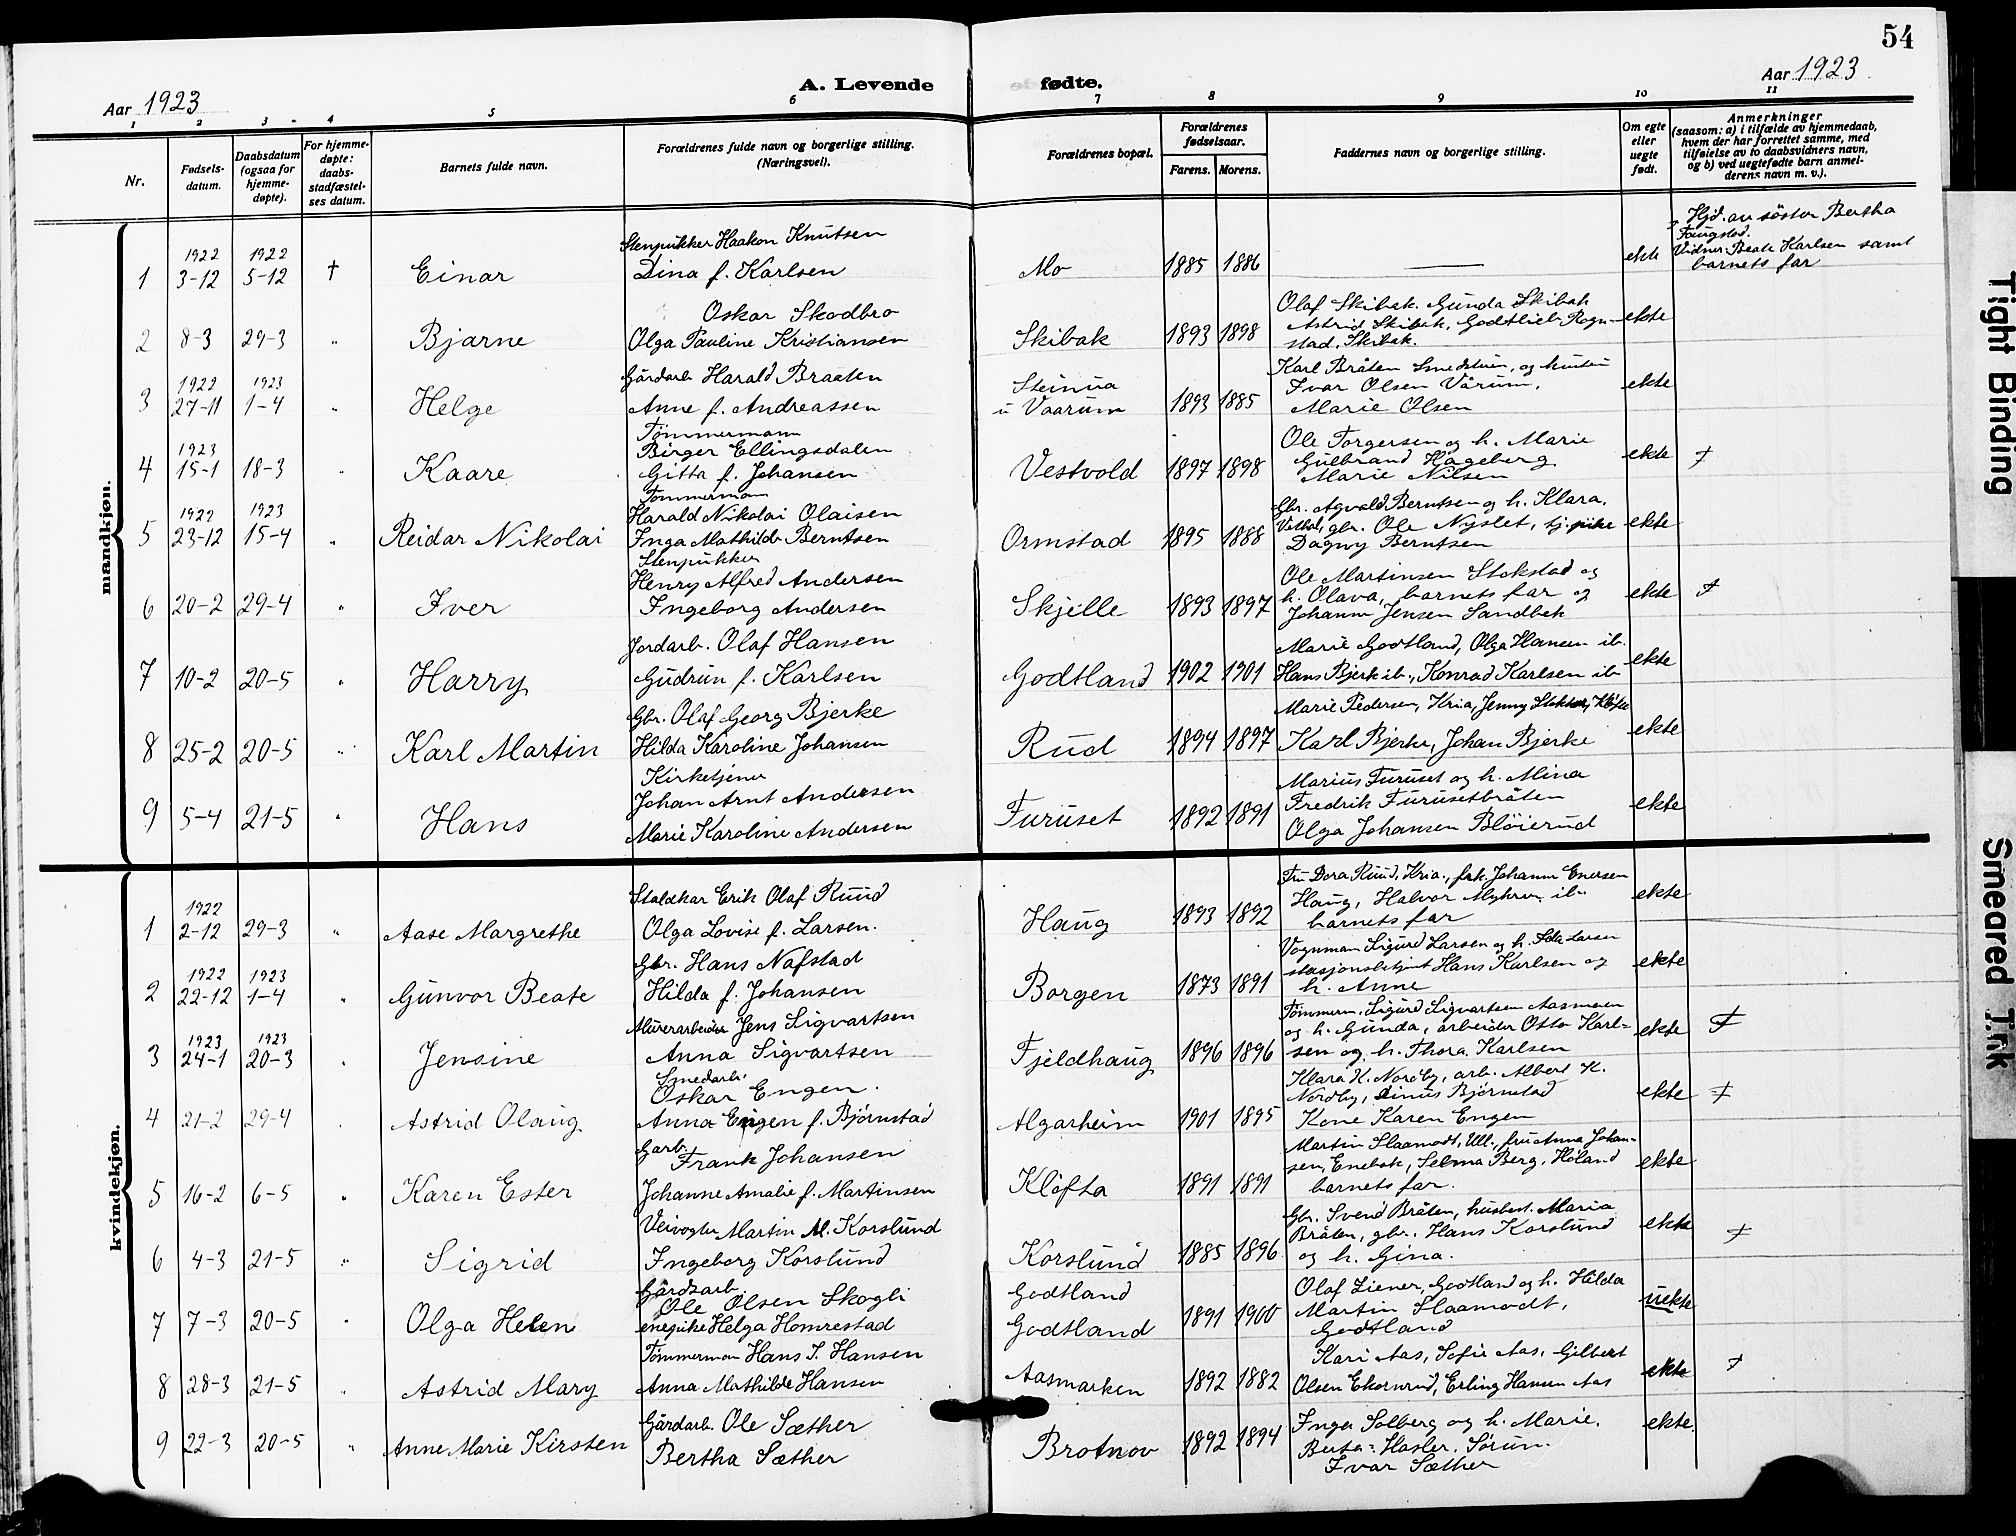 54
A. Levende fødte.
Aar 1923
Aar 1923
1 2 3 4 5 6 7 8 9 10 11
Nr.
Fødsels-datum.
Daabsdatum (ogsaa for hjemme-døpte).
For hjemme-døpte: daabs-stadfæstel-ses datum.
Barnets fulde navn.
Forældrenes fulde navn og borgerlige stilling. (Næringsvei).
Forældrenes bopæl.
Forældrenes fødselsaar.
Farens. Morens.
Faddernes navn og borgerlige stilling.
Om egte eller uegte født.
Anmerkninger (saasom: a) i tilfælde av hjemmedaab, hvem der har forrettet samme, med tilføielse av to daabsvidners navn, og b) ved uegtefødte barn anmel-derens navn m. v.).
mandkjøn.
1 1922 3-12 1922 5-12 † Einar
Stenpukker Haakon Knutsen
Dina f. Karlsen
Mo 1885 1886 — ekte
Hjd. av søster Bertha
Faugstad.
Vidner: Beate Karlsen samt
barnets far
2 8-3 29-3 " Bjarne
Oskar Skodbro
Olga Pauline Kristiansen
Skibak 1893 1898
Olaf Skibak. Gunda Skibak
Astrid Skibak, Godtlieb Rogn-
stad. Skibak.
ekte
3 1922 27-11 1923 1-4 " Helge
Gårdarb. Harald Braaten
Anne f. Andreassen
Steinua
u Vaarum 1893 1885
Karl Bråten Smedstuen, og hustru
Ivar Olsen Vårum,
Marie Olsen
ekte
4 1923 15-1 18-3 " Kaare
Tømmermann
Birger Ellingsdalen
Gitta f. Johansen
Vestvold 1897 1898
Ole Torgersen og h. Marie
Gulbrand Hageberg
Marie Nilsen
ekte
5 1922 23-12 1923 15-4 " Reidar Nikolai
Tømmermann
Harald Nikolai Olaisen
Inga Mathilde Berntsen
Ormstad 1895 1888
Gbr. Agvald Berntsen og h. Klara.
gbr. Ole Nyslet, tj. pike
Dagny Berntsen
ekte
6 20-2 29-4 " Iver
Stenpukker
Henry Alfred Andersen
Ingeborg Andersen
Skjelle 1893 1897
Ole Martinsen Stokstad og
h. Olava, barnets far og
Johanne Jensen Sandbek
ekte
7 10-2 20-5 " Harry
Jordarb. Olaf Hansen
Gudrun f. Karlsen
Godtland 1902 1901
Marie Godtland, Olga Hansen ib.
Hans Bjerk ib., Konrad Karlsen ib
ekte
8 25-2 20-5 " Karl Martin
Gbr. Olaf Georg Bjerke
Hilda Karoline Johansen
Rud 1894 1897
Marie Pedersen, Kria, Jenny Kløfta
Karl Bjerke, Johan Bjerke
ekte
9 5-4 21-5 " Hans
Kirketjener
Johan Arnt Andersen
Marie Karoline Andersen
Furuset 1892 1891
Marius Furuset og h. Mina
Fredrik Furusetbråten
Olga Johansen Bløierud
ekte
kvindekjøn.
1 1922 2-12 29-3 " Aase Margrethe
Staldkar Erik Olaf Ruud
Olga Lovise f. Larsen.
Haug 1893 1892
Fru Dora Ruud, Kria., frk. Johanne Enersen
Haug, Halvor Myhrer ib.
barnets far
ekte
2 1922 22-12 1923 1-4 " Gunvor Beate
Gbr. Hans Nafstad
Hilda f. Johansen
Borgen 1873 1891
Vognman Sigurd Larsen og h. Ida Larsen
stasjonsbetjent Hans Karlsen og
h. Anne
ekte
3 1923 24-1 1923 20-3 " Jensine
Murerarbeider Jens Sigvartsen
Anna Sigvartsen
Fjeldhaug 1896 1896
Tømmerm. Sigurd Sigvartsen Aasmoen
og h. Gunda, arbeider Otto Karl-
sen og h. Thora Karlsen
ekte
4 21-2 29-4 Astrid Olaug
Smedarb.
Oskar Engen.
Anna Engen f. Bjørnstad
Algarheim 1901 1895
Klara K. Nordby, arb. Albert K.
Nordby, Linus Bjørnstad
Kone Karen Engen
ekte
5 16-2 6-5 " Karen Ester
Garb.
Frank Johansen
Johanne Amalie f. Martinsen
Kløfta 1891 1891
Martin Slaamodt, Ull., fru Anna Johan-
sen, Enebak, Selma Berg, Høland
barnets far.
ekte
6 4-3 21-5 " Sigrid
Veivogter Martin M. Korslund
Ingeborg Korslund
Korslund 1885 1896
Gbr. Svend Bråten, husbest. Maria
Bråten, gbr. Hans Korslund
og h. Gina.
ekte
7 7-3 20-5 " Olga Helen
Gårdsarb.
Ole Olsen Skogli
enepike Helga Homrestad
Godtland
Godtland 1891 1900
Olaf Liener, Godtland og h. Hilda
Martin Slaamodt,
Godtland
uekte
8 28-3 21-5 " Astrid Mary
Tømmerman Hans J. Hansen
Anna Mathilde Hansen
Aasmarken 1892 1882
Kari Aas, Sofie Aas, Gilbert
Olsen Ekornrud, Erling Hansen Aas
ekte
9 22-3 20-5 " Anne Marie Kirsten
Gårdarb. Ole Sæther
Bertha Sæther
Brotnov 1892 1894
Inga Solberg og h. Marie.
Hasler. Sørum.
Ivar Sæther
ekte.
Tight Binding
Smeared Ink